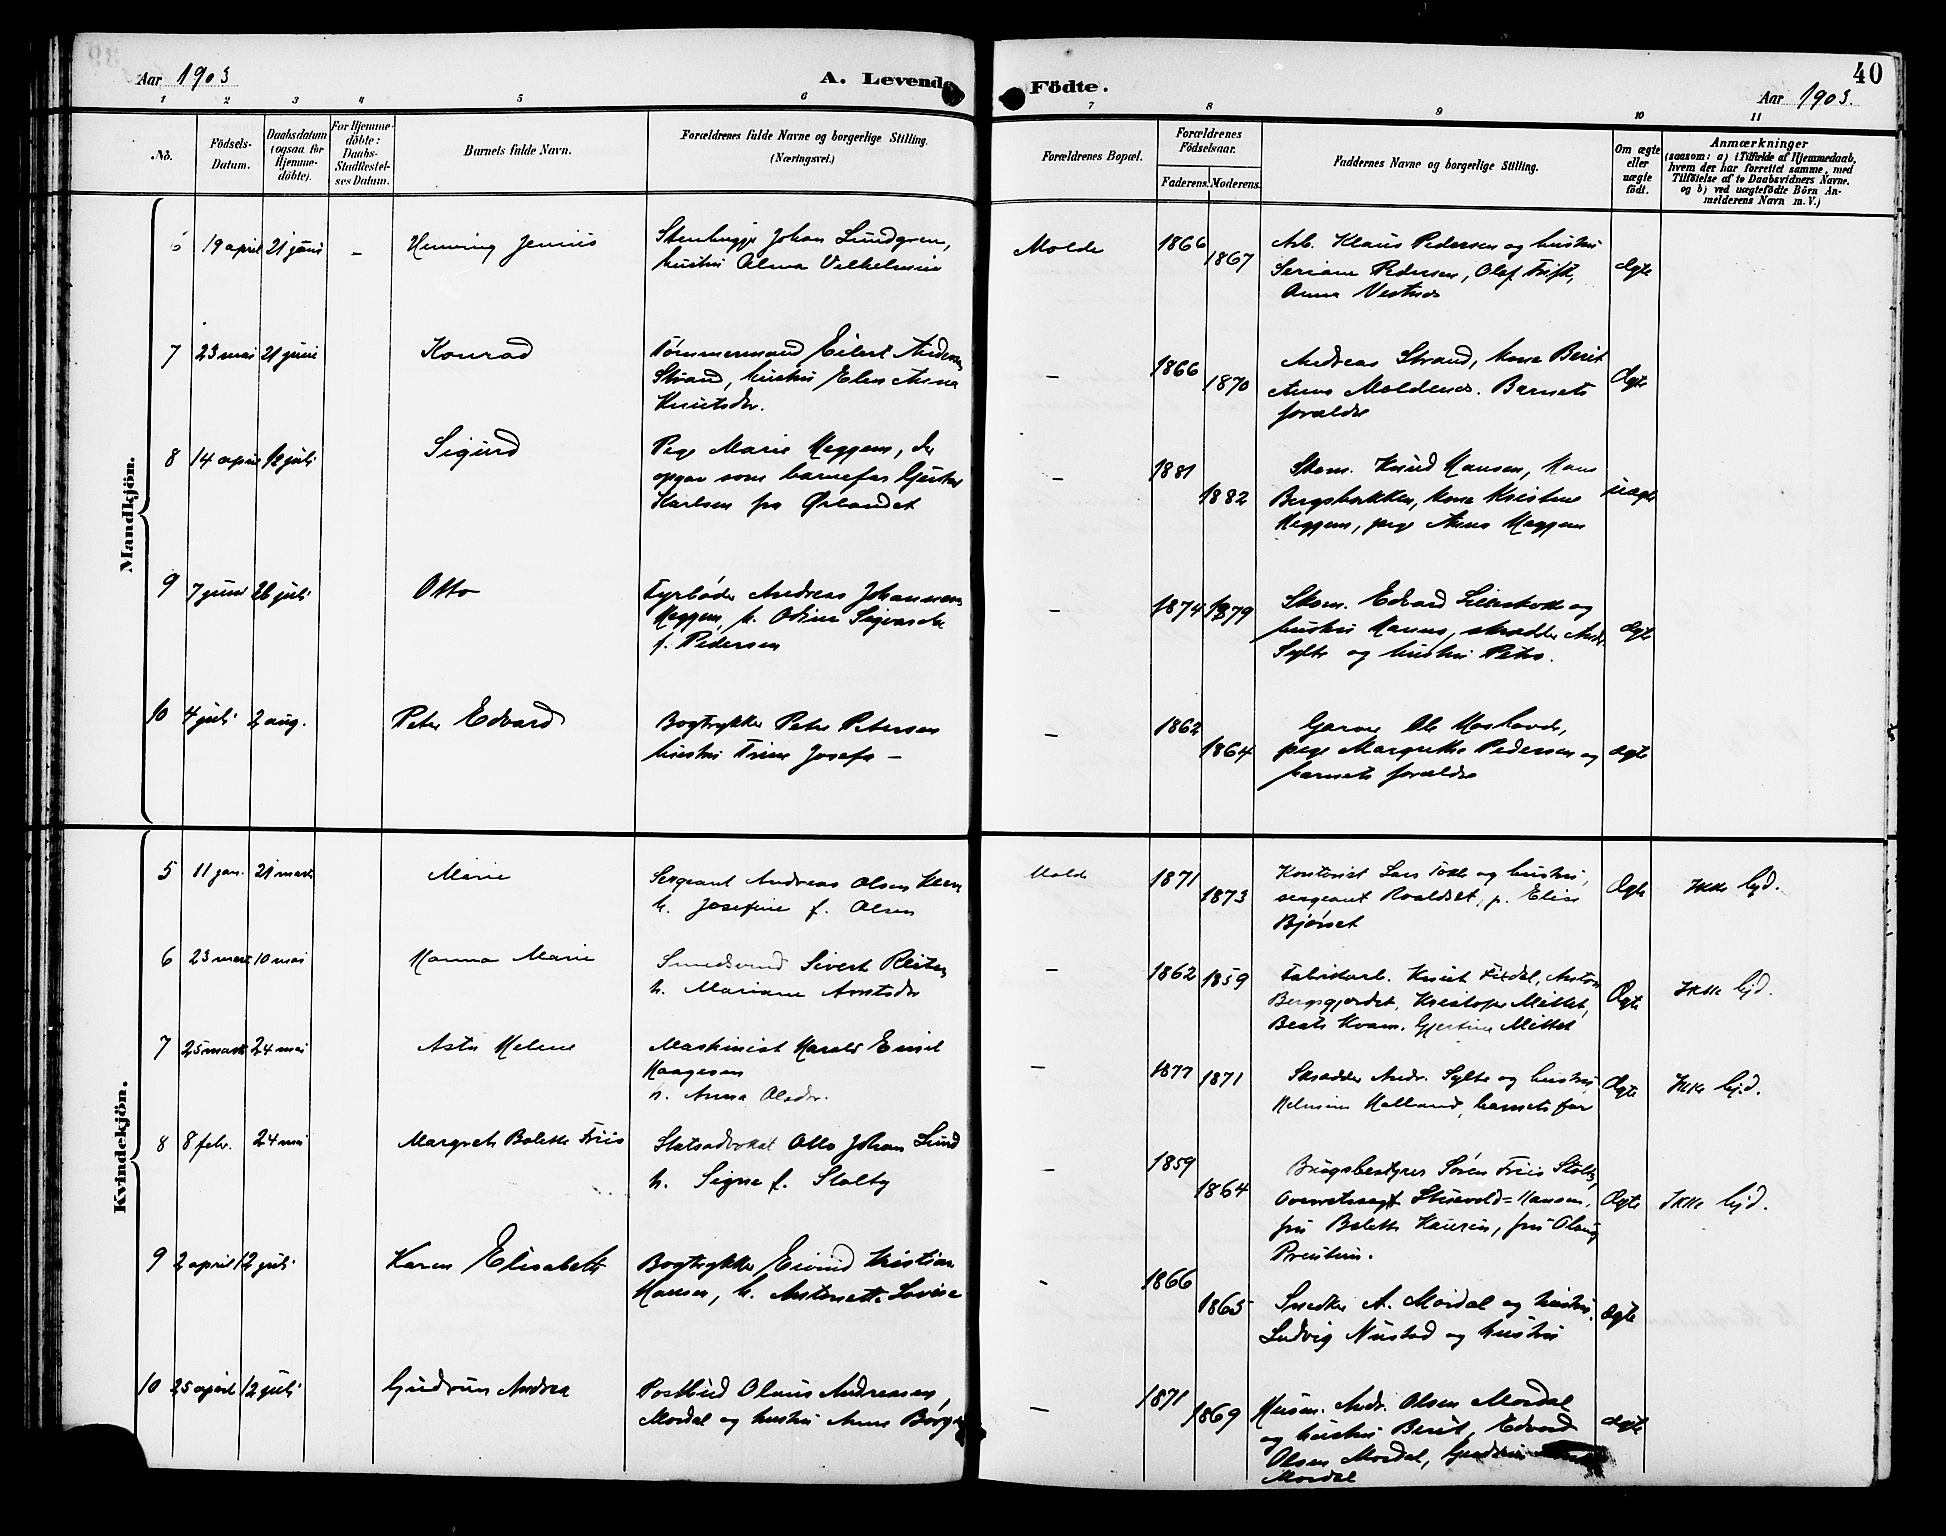 40
Aar 1903
A. Levende
Födte.
Aar 1903.
1 2 3 4 5 6 7 8 9 10 11
No.
Födsels-
Datum.
Daabsdatum
(ogsaa for
Hjemme-
döbte).
For Hjemme-
döbte:
Daabs-
Stadfestel-
ses Datum.
Barnets fulde Navn.
Forældrenes fulde Navne og borgerlige Stilling.
(Næringsvei.)
Forældrenes Bopæl.
Forældrenes
Födselsaar.
Faderens. Moderens.
Faddernes Navne og borgerlige Stilling.
Om ægte
eller
uægte
födt.
Anmærkninger
(saasom: a) i Tilfælde af Hjemmedaab,
hvem der har forrettet samme, med
Tilföielse af to Daabsvidners Navne,
og b) ved uægtefödte Börn An-
melderens Navn m. V.)
Mandkjön.
6 19 april 21 juni - Henning Jenius
Stenhugger Johan Lundgren,
hustru Alma Vilhelmine
Molde 1866 1867
Arb. Klaus Pedersen og hustru
Seriane Pedersen, Olaf Trift,
Anna Vestnes
ægte
7 23 mai 21 juni Konrad
Tømmermand Eilert Andersen
Strand, hustru Elen Anna
Knutsdr.
- 1866 1870
Andreas Strand, kone Berit
Anna Moldenes. Barnets
forældre
Ægte
8 14 april 12 juli Sigurd
Pige Marie Heggem, der
opgav som barnefar Gustav
Karlsen fra Ørlandet
- 1881 1882
Skom. Knud Hansen, Hans
Bergsbakken, kone Kristine
Heggem, pige Anna Heggem
uægte
9 7 juni 26 juli Otto
Fyrbøder Andreas Johannesen
Heggem, h. Odine Sigvarda
f. Pedersen
- 1874 1879
Skom. Edvard Lillestokk og
hustru Hanna, skrædder Andr.
Sylte og hustru Petra.
ægte
10 4 juli 2 aug. Peter Edvard
Bogtrykker Peter Petersen
hustru Trine Josefa -
- 1862 1864
Garver Ole
pige Margrethe Pedersen og
barnets forældre
ægte
Kvindekjön.
5 11 jan. 21 marts Marie
Sergeant Andreas Olsen
h. Josefine f. Olsen
Molde 1871 1873
Kontorist Lars Tokle og hustru,
sergeant Roaldset, p. Elise
Bjørset
Ægte Ikke lyd.
6 23 mart 10 mai Hanna Marie
Smedsvend Sivert Reiten
h. Mariane Arntsdr
- 1862 1859
Fabrikarb. Knut Fixdal, Anton
Bergsgjerdet, Kristofer Mittet,
Beate Kvam. Gjertine Mittet
Ægte Ikke lyd.
7 25 mart 24 mai Asta Helene
Maskinist Harald Emil
Haagesen
h. Anna Olsdr.
- 1877 1871
Skrædder Andr. Sylte og hustru
Helmine Holland, barnets far
Ægte Ikke lyd.
8 8 febr. 24 mai Margreth Bolette Friis
Statsadvokat Otto Johan Lund
h. Signe f. Stolty
- 1859 1864
Brugsbestyrer Søren Friis Stolty,
Overretssagf. = Hansen,
fru Bolette Kaurin, fru Olaug
Ægte Ikke lyd.
9 2 april 12 juli Karen Elisabeth
Bogtrykker Eivind Kristian
Hansen, h. Antonette Lovise
- 1866 1865
Snedker A. Mordal og hustru.
Ludvig Nustad og hustru
Ægte
10 25 april 12 juli Gudrun Andrea
Postbud Olaus Andreasen
Mordal og hustru Anne
- 1871 1869
Husm. Andr. Olsen Mordal
og hustru Berit, Edvard
Olsen Mordal, Gudrun
Mordal
ægte